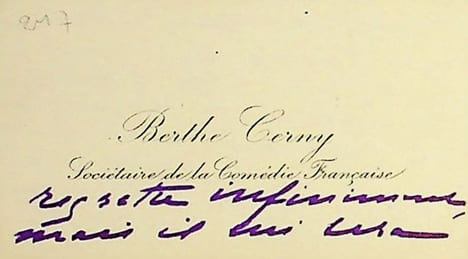 Berthe Cerny
Sociétaire de la Comédie Française
regrette infiniment,
mais il lui sera